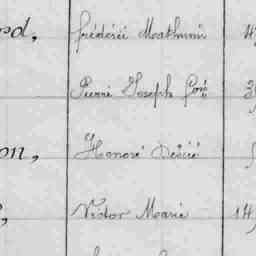 rd, Frédéric Mathurin 4
Pierre Joseph 3
on, Honoré Désiré
Victor Marie 14,